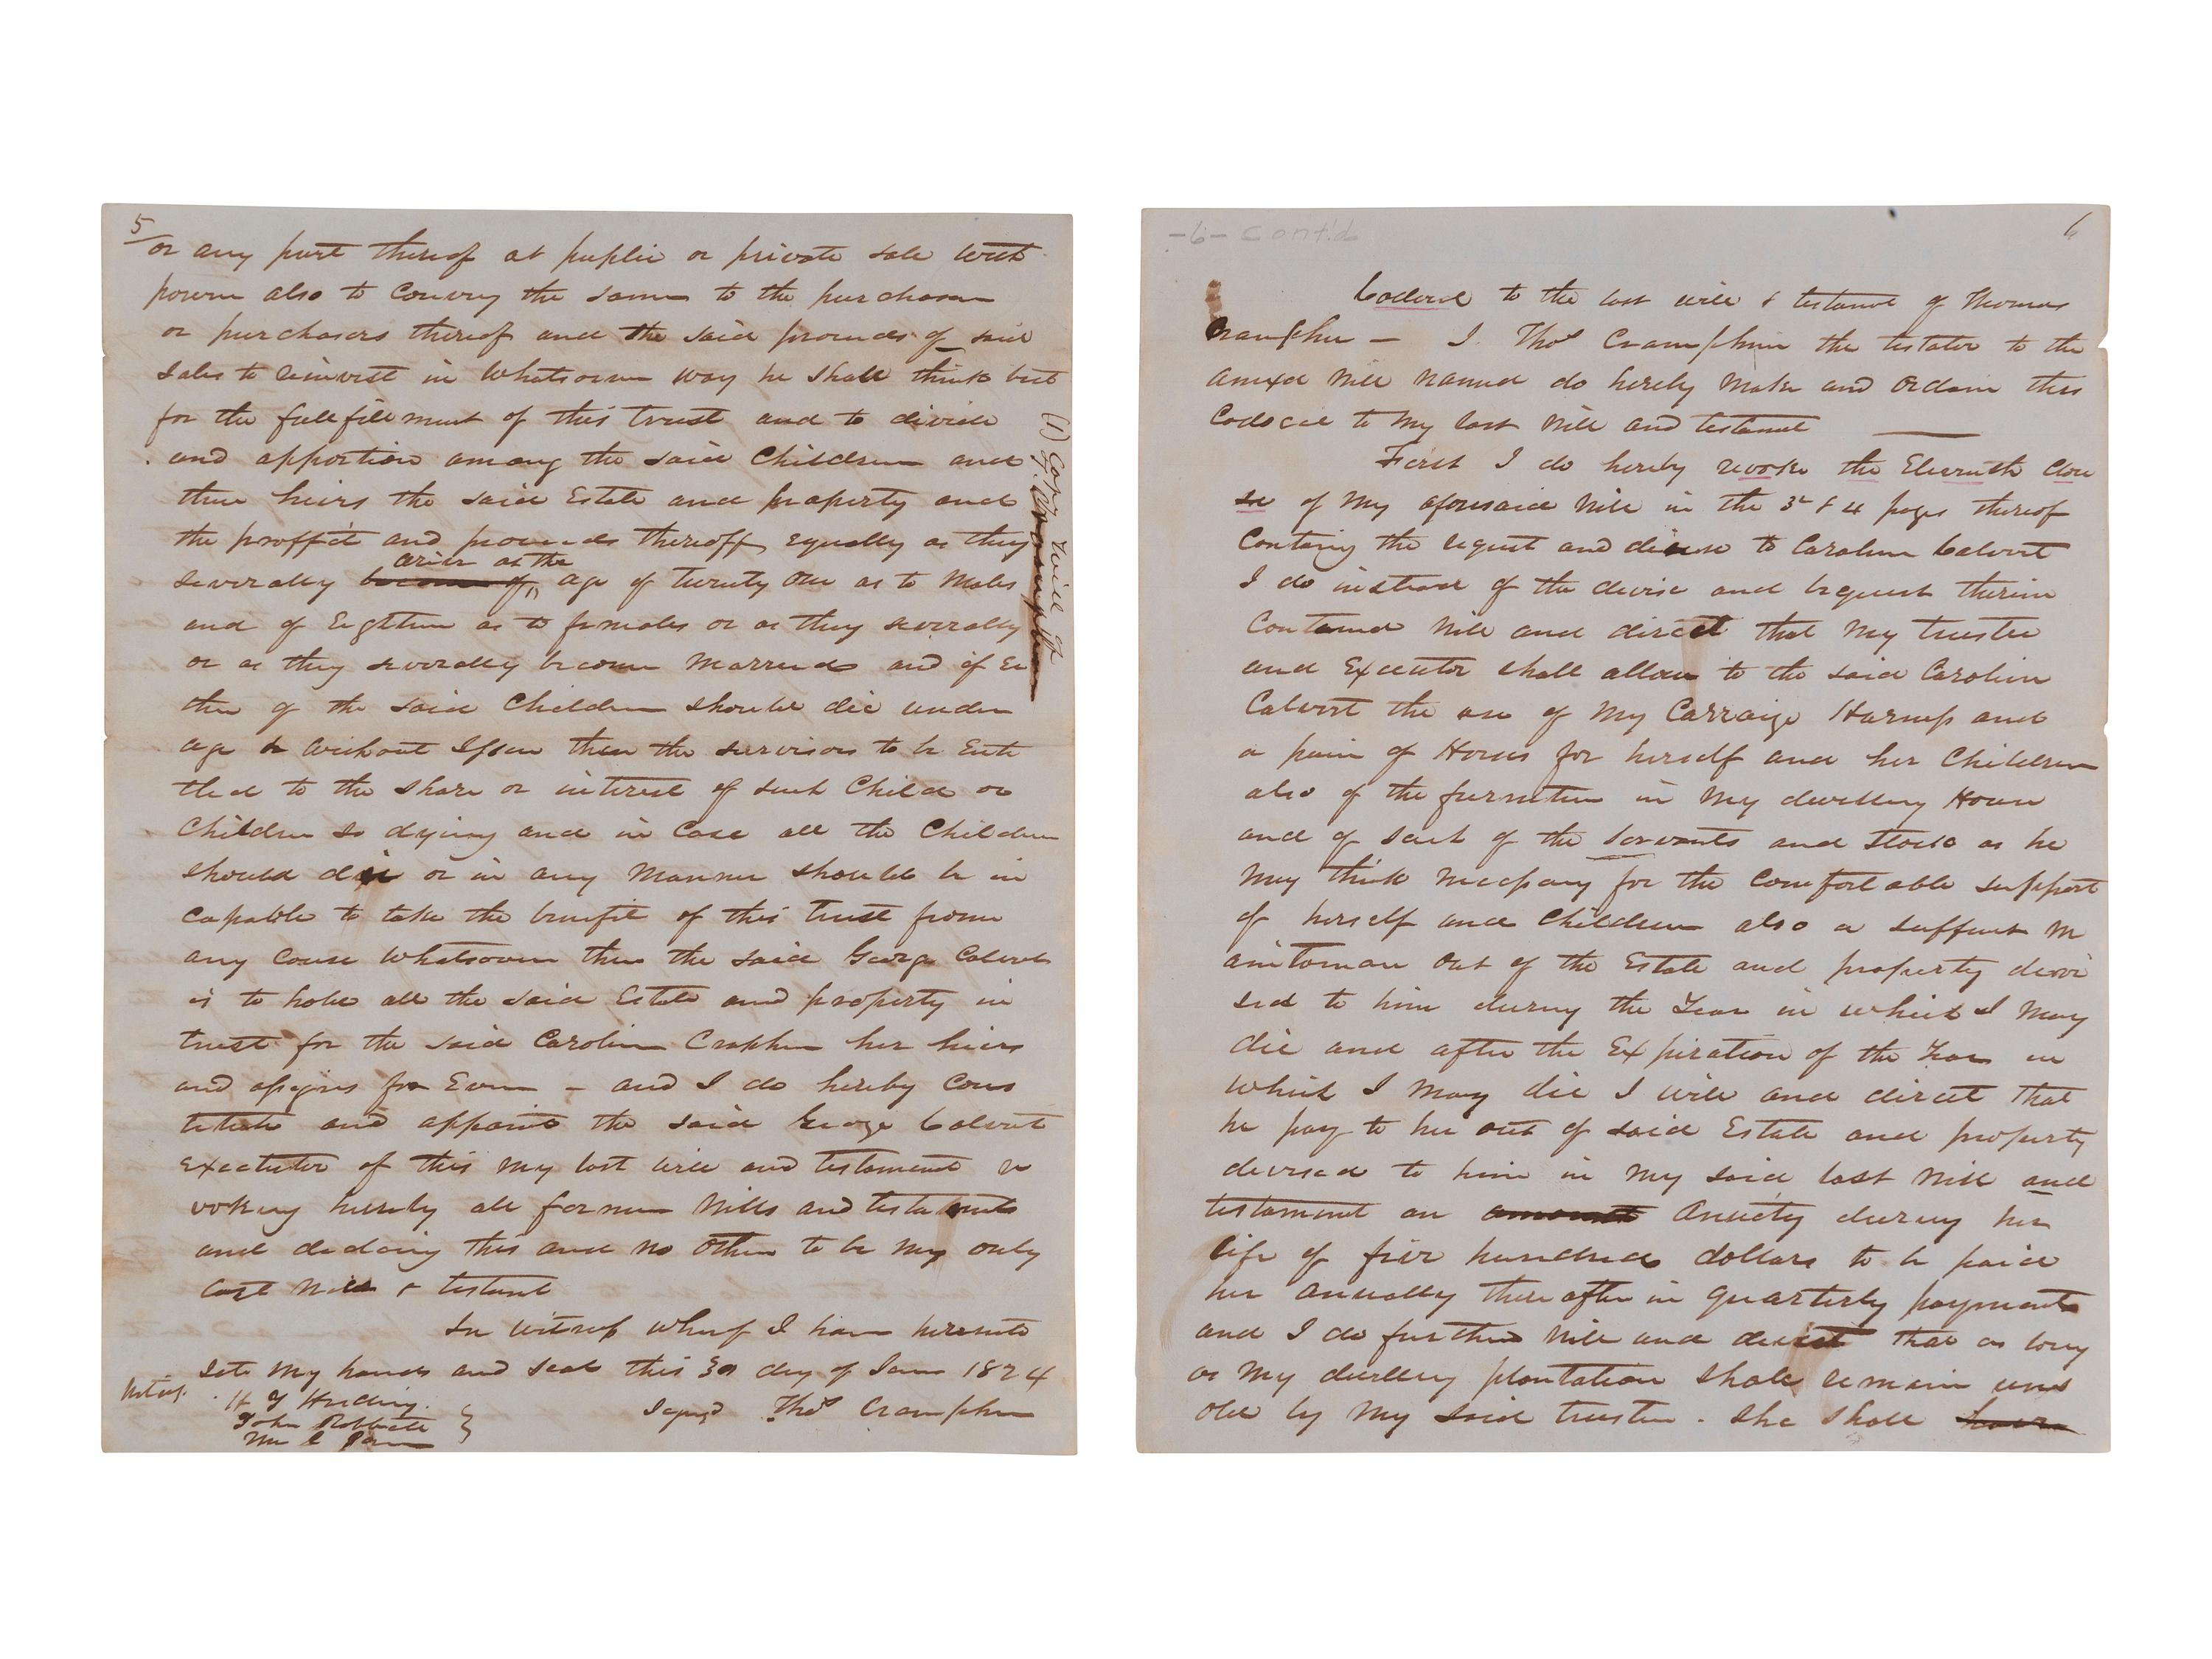 5
or any part thereof at puplic or private sale with
power also to convey the same to the purchaser
or purchasers thereof and the said proceeds of said
Sales to reinvest in Whatsoever way he shall think best
for the fullfillment of this trust and to divide
and apportion among the said Children and
their heirs the said Estate and property and
the proffit and proceeds thereoff equally as they
arive at the
severally become of age of twenty one as to Males
and of Eighteen as to females or as they severally
or as they severally become Married and if Ei
ther of the said Children should die under
age or Without Issue then the survivors to be Enti
tled to the share or interest of such Child or
Children so dying and in Case all the Children
should die or in any Manner should be in
capable to take the benefit of this trust from
any Cause Whatsoever then the said George Calvert
is to hold all the said Estate and property in
trust for the said Caroline Craphin her heirs
and assigns for Ever – and I do hereby Cons
titute and appoint the said George Calvert
Exectutor of this my last will and testament re
voking hereby all former Wills and testaments
and declaring this and no other to be my only
last Will & testant
In witness wherof I have hereunto
Sete my hands and seal this 30 day of Jann 1824
Witness.
H Y Harding.
John Rabbitt
Wm C
Signed Thos Cramphin
(1) Copy Will of
T. Cramphin
-6- Cont'd
6
Codocil to the last will & testamt of Thomas
Cramphin – I. Thos Cramphin the testator to the
anexd Will named do hereby Make and Ordain this
Codocil to my last Will and testamt
First I do hereby revoke the Eleventh Clau
se of my aforesaid Will in the 3d & 4 pages thereof
Containg the bequest and devise to Caroline Calvert
I do instead of the devise and bequest therein
Contained Will and direct that my trustee
and Executor shall allow to the said Caroline
Calvert the use of my Carraige Harness and
a pair of Horses for herself and her Children
also of the furneture in my dwelling House
and of such of the Servants and Stock as he
may think necessary for the Comfortable support
of herself and Children also a suffient m
aintanance out of the Estate and property devi
sed to him during the Year in which I may
die and after the Expiration of the Year in
which I may die I will and direct that
he pay to her out of said Estate and property
devised to him in my said last Will and
testament an amount Anuety during her
life of five hundred dollars to be paid
her Anually thereafter in quarterly payments
and I do further Will and direct that as long
as my dwelling plantation shall remain uns
old by my said trustee. She shall have